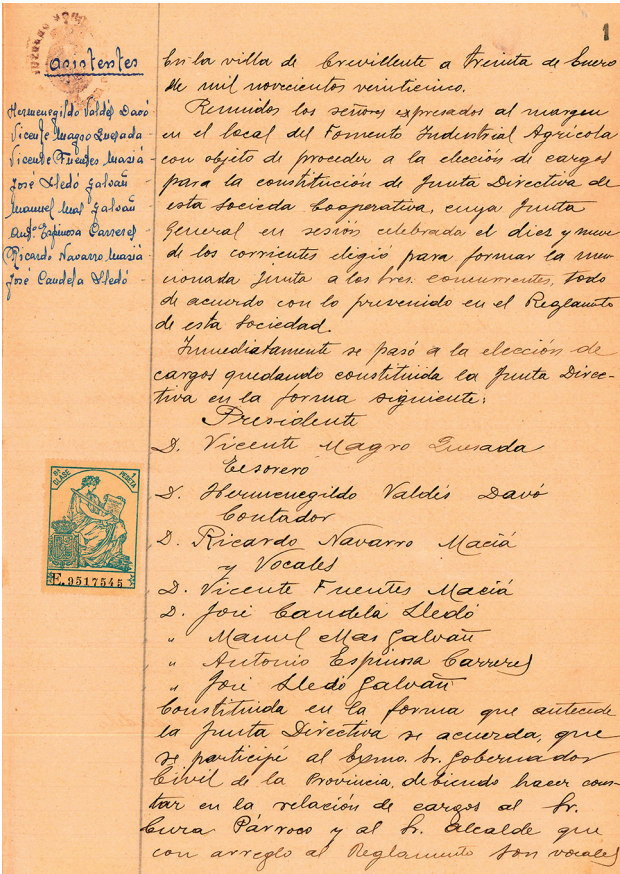 1
asistentes
Hermenegildo Valdés Davó
Vicente Magro Quesada
Vicente Fuentes Maciá
José Lledó Galvañ
Manuel Mas Galvañ
Antº Espinosa Carreres
Ricardo Navarro Maciá
José Candela Lledó
En la villa de Crevillente a treinta de Enero
de mil novecientos veinticinco.
Reunidos los señores expresados al margen
en el local del Fomento Industrial Agrícola
con objeto de proceder a la elección de cargos
para la constitución de Junta Directiva de
esta Socieda Cooperativa, cuya Junta
General en sesión celebrada el diez y nueve
de los corrientes eligió para formar la men-
cionada Junta a los Sres. concurrentes, todo
de acuerdo con lo prevenido en el Reglamto
de esta Sociedad.
Inmediatamente se pasó a la elección de
cargos quedando constituida la Junta Direc-
tiva en la forma siguiente:
Presidente
D. Vicente Magro Quesada
Tesorero
D. Hermenegildo Valdés Davó
Contador
D. Ricardo Navarro Maciá
y Vocales
D. Vicente Fuentes Maciá
D. José Candela Lledó
" Manuel Mas Galvañ
" Antonio Espinosa Carreres
" José Lledó Galvañ
Constituida en la forma que antecede
la Junta Directiva se acuerda, que
se participé al Exmo. Sr. Gobernador
Civil de la Provincia, debiendo hacer cons-
tar en la relación de cargos al Sr.
Cura Párroco y al Sr. Alcalde que
con arreglo al Reglamento son vocales
8ª CLASE 1 PESETA
E.9517545